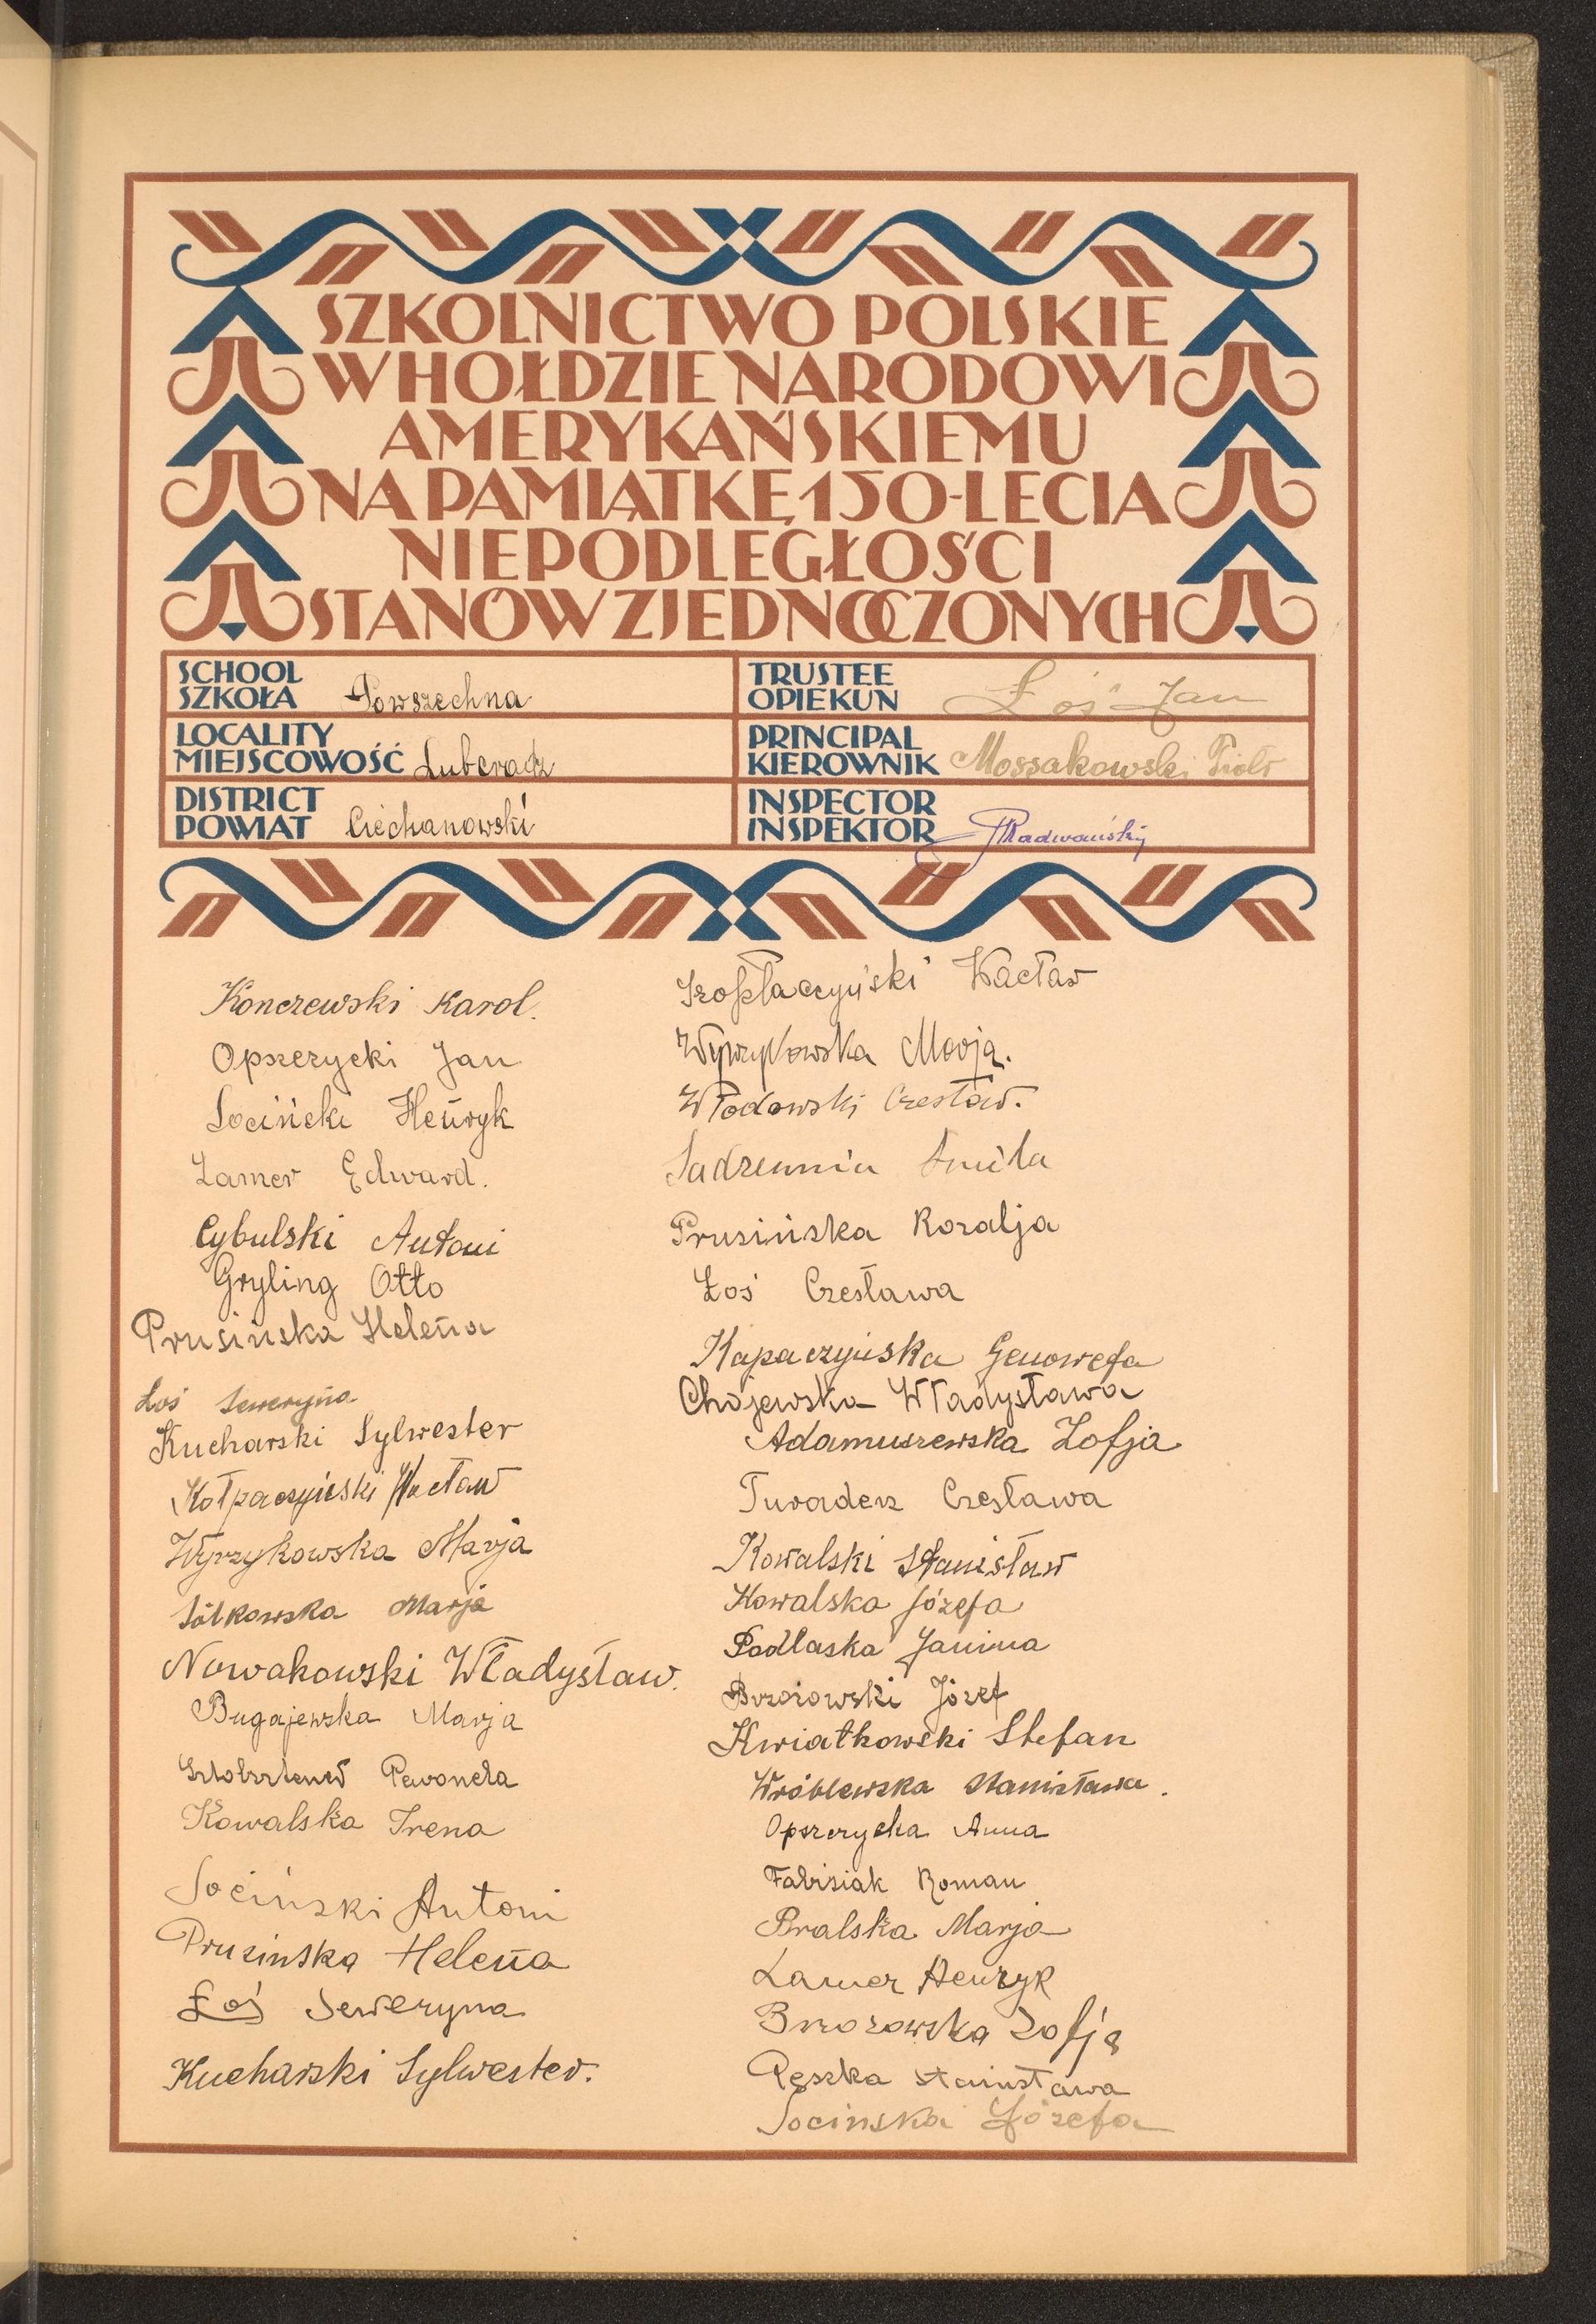 SZKOLNICTWO POLSKIE
W HOŁDZIE NARODOWI
AMERYKAŃSKIEMU
NA PAMIĄTKĘ 150-LECIA
NIEPODLEGŁOŚCI
STANÓW ZJEDNOCZONYCH
SCHOOL
SZKOŁA Powszechna
LOCALITY
MIEJSCOWOŚĆ Luberadz
DISTRICT
POWIAT Ciechanowski
TRUSTEE
OPIEKUN Łoś Jan
PRINCIPAL
KIEROWNIK Mossakowski Piotr
INSPECTOR
INSPEKTOR Radwański
Konczewski Karol.
Opszerycki Jan
Sociński Henryk
Lamer Edward.
Cybulski Antoni
Gryling Otto
Prusińska Helena
Łoś Seweryna
Kucharski Sylwester
Kołpaczyński Wacław
Wyrzykowska Marja
Marja
Nowakowski Władysław.
Bugajewska Marja
Kowalska Irena
Sociński Antoni
Prusinska Helena
Łoś Seweryna
Kucharski Sylwester.
Wacław
Wyrzykowska Marja.
Włodowski Czesław.
Prusińska Rozalja
Łoś Czesława
Kapaczyńska Genowefa
Chojewska Władysława
Adamuszewska Zofja
Turadek Czesława
Kowalski Stanisław
Kowalska Józefa
Podlaska Janina
Brzozowski Józef
Kwiatkowski Stefan
Wróblewska Stanisława.
Opszerycka Anna
Fabisiak Roman
Bralska Marja
Lamer Henryk
Brzozowska Zofja
Pęszka Stanisława
Socinska Józefa